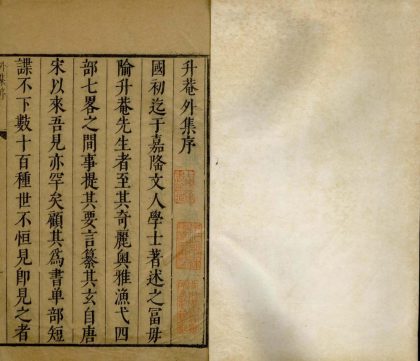 升菴外集序
國初迄于嘉隆文人學士著述之冨毋
隃升菴先生者至其奇麗奥雅漁弋四
部七畧之間事提其要言纂其玄自唐
宋以來吾見亦罕矣顧其爲書单部短
諜不下數十百種世不恒見卽見之者